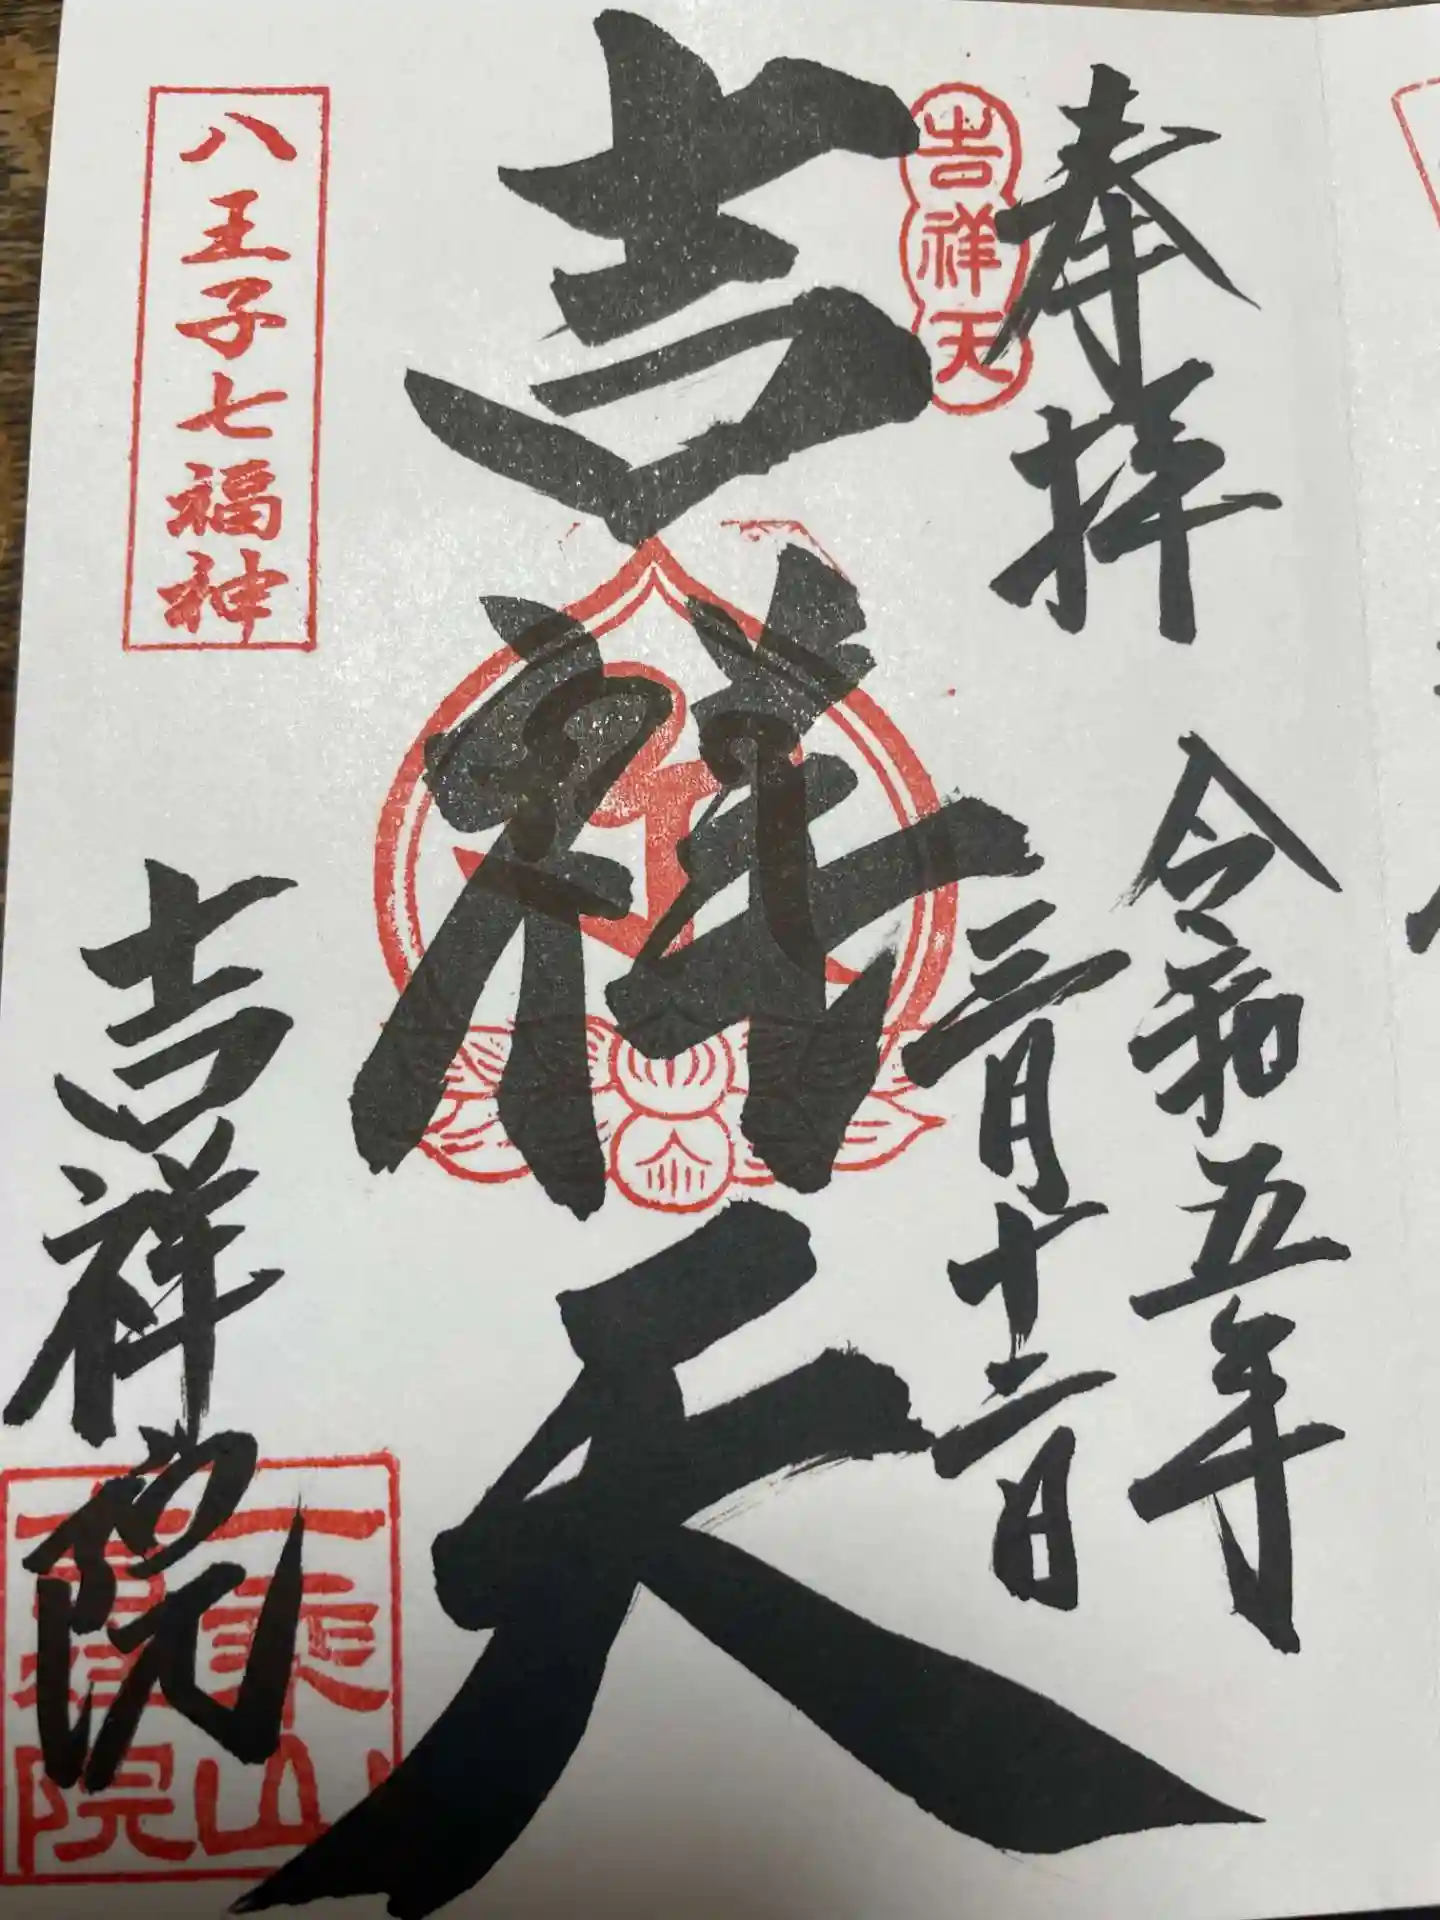 奉拝
令和五年
三月十二日
吉祥天
吉祥天
八王子七福神
吉祥院